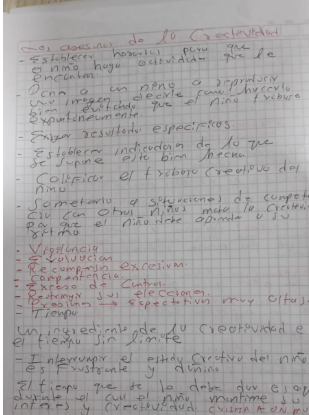 Los asesinos de la Creatividad
- Establecer horarios para que
el niño haga actividades que le
encantan
- a un niño a reproducir
una imagen decirle como hacerlo
bien evitando que el niño trabaje
espontaneamente
- Exigir resultados especificos
- Establecer indicadores de lo que
se supone esta bien hecho
- Calificar el trabajo creativo del
niño
- Someterlo a situaciones de compet
cia con otros niños mata la creativi
que el niño debe a su
ritmo
- Vigilancia
- Evaluacion
- Recompensa excesiva
- Competencia
- Exceso de Control
- Restringir sus elecciones
- Presion → Espectativas muy altas
- Tiempo
Un ingrediente de la creatividad e
el tiempo sin limite
- Interrumpir el creativo del niño
es frustrante y
El tiempo que te debe dar es
durante el cual el niño mantiene su
interes y creatividad